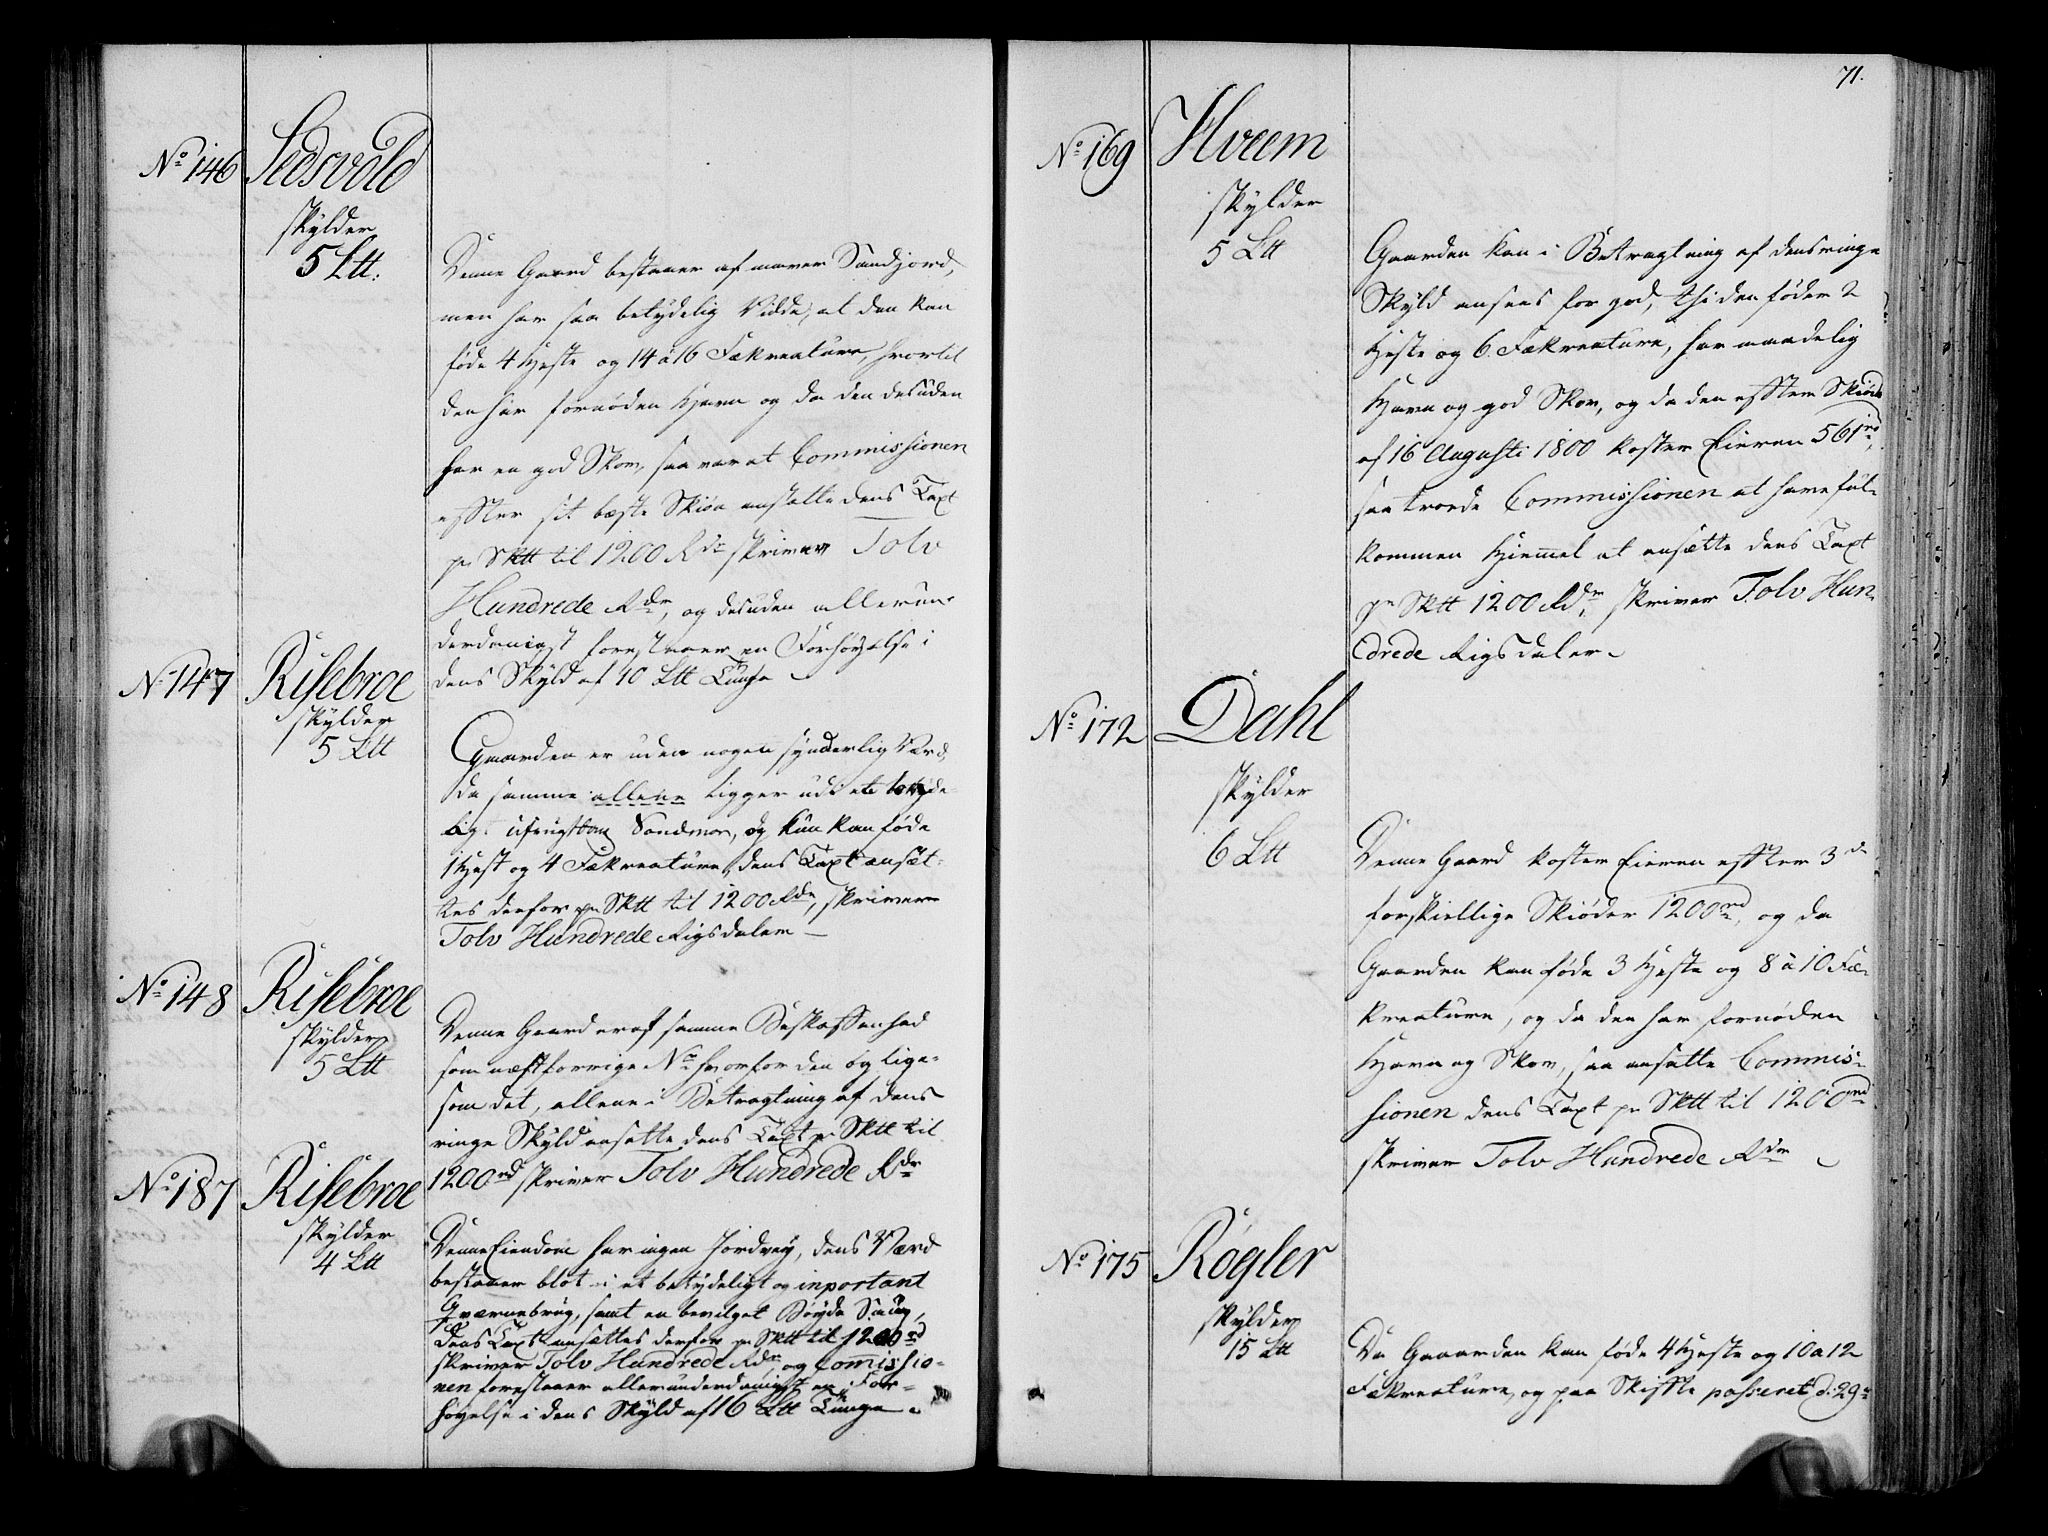 No 146 Sedsvold
skylder
5 Ltt.
Denne Gaard bestaaer af maver Sandjord,
men har saa betydelig Vidde, at den kan
føde 4 Heste og 14 à 16 Fækreature, hvortil
den har fornøden Havn og da den desuden
har en god Skov, saa var at Commissionen
efter sit beste Skiøn ansatte dens Taxt
pr Sktt til 1200 Rdr skriver Tolv
Hundrede Rdr, og desuden allerun-
derdanigst forestaaer en Forhøyelse i
dens Skyld af 10 Ltt Tunge
No 147 Risebroe
skylder
5 Ltt
Gaarden er uden nogen synderlig Værd,
da samme allene ligger udi et betyde-
ligt ufrugtbar Sandmoe, og kun kan føde
1 Hest og 4 Fækreature, dens Taxt ansæt-
tes derfor pr Sktt til 1200 Rdr, skriver
Tolv Hundrede Rigsdaler
No 148 Risebroe
skylder
5 Ltt
Denne Gaard er af samme Beskaffenhed
som næstforrige No hvorfor den og lige-
som det, allene i Betragtning af dens
ringe Skyld ansatte dens Taxt pr Sktt til
1200 rd skriver Tolv Hundrede Rdr
No 187 Risebroe
skylder
4 Ltt
Denne Eiendom har ingen Jordvey, dens Værd
bestaaer blot i et betydeligt og inportant
Qværnebrug, samt en bevilget Bøyde Saug,
dens Taxt ansættes derfor pr Sktt til 1200 rd
skriver Tolv Hundrede Rdr, og Comissio-
nen forestaaer allerunderdanigst en For-
høyelse i dens Skyld af 16 Ltt Tunge
71.
No 169 Hveem
skylder
5 Ltt
Gaarden kan i Betragtning af dens ringe
Skyld ansees for god, thi den føder 2
Heste og 6 Fækreature, har maadelig
Havn og god Skov, og da den efter Skiøde
af 16 Augusti 1800 koster Eieren 561 rd,
saa troede Commissionen at have ful-
kommen Hiemmel at ansætte dens Taxt
pr Sktt 1200 Rdr, skriver Tolv Hun-
drede Rigsdaler
No 172 Dahl
skylder
6 Ltt
Denne Gaard koster Eieren efter 3de
forskiellige Skiøder 1200 rd, og da
Gaarden kan føde 3 Heste og 8 à 10 Fæ-
kreature, og da den har fornøden
Havn og Skov, saa ansatte Commis-
sionen dens Taxt pr Sktt til 1200 rd
skriver Tolv Hundrede Rdr
No 175 Røgler
skylder
15 Ltt
Da Gaarden kan føde 4 Heste og 10 a 12
Fækreature, og paa Skifte passeret d. 29de